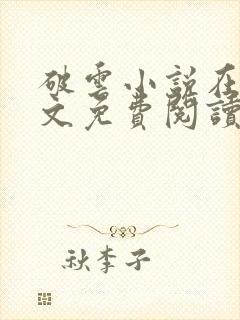 破雲小說在
文免費閱讀
秋李子